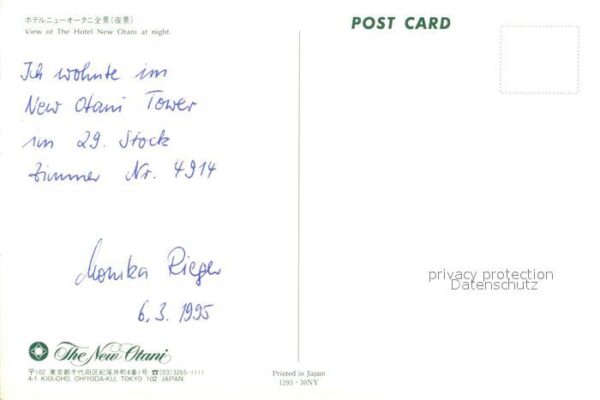 ホテルニューオータニ全景(夜景)
View of The Hotel New Otani at night.
POST CARD
Ich wohnte im
New Otani Tower
im 29. Stock
Zimmer Nr. 4914
Monika Rieger
6.3. 1995
privacy protection
Datenschutz
The New Otani
〒102 東京都千代田区紀尾井町4番1号 ☎(03)3265-1111
4-1 KIOI-CHO, CHIYODA-KU, TOKYO 102 JAPAN
Printed in Japan
1293・30NY